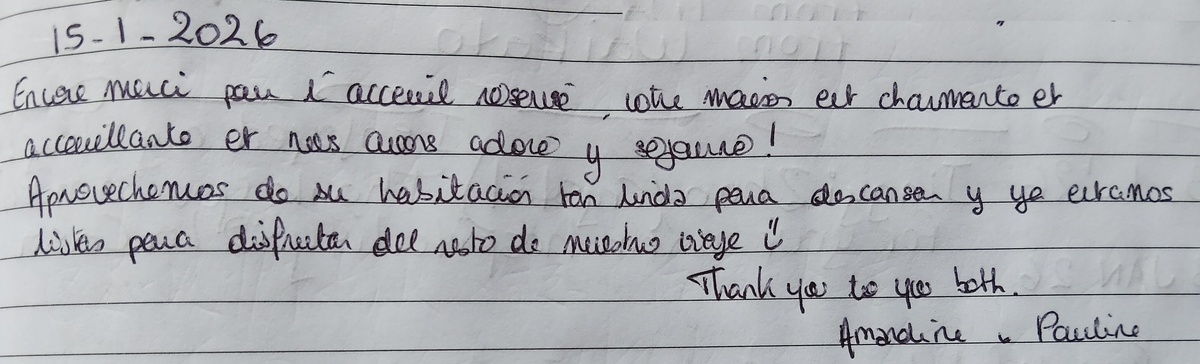 15-1-2026
Encore merci pour l'acceuil réservé, votre maison est charmante et
accueillante et nous avons adoré y séjourné !
Aprovechemos de su habitación tan linda para descansar y ya estamos
listas para disfrutar del resto de nuestro viaje
Thank you to you both.
Amandine & Pauline